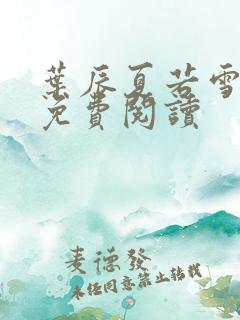 葉辰夏若雪
免費閱讀
麦德發
未经同意禁止转载